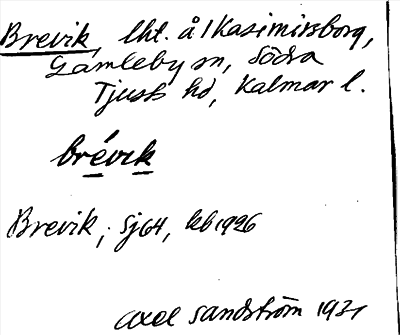 Brevik, lht. å Kasimirsborg,
Gamleby sn, Södra
Tjusts hd, Kalmar l.
brévik
Brevik, Sj64, kb 1926
Axel Sandström 1931